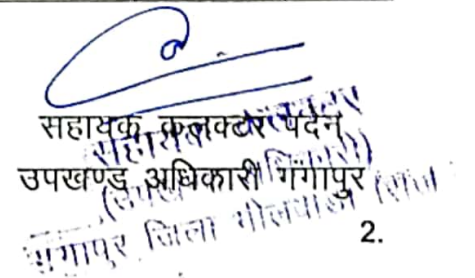 सहायक कलक्टर पदेन्
उपखण्ड अधिकारी गंगापुर
गंगापुर जिला भीलवाड़ा (राज
2.